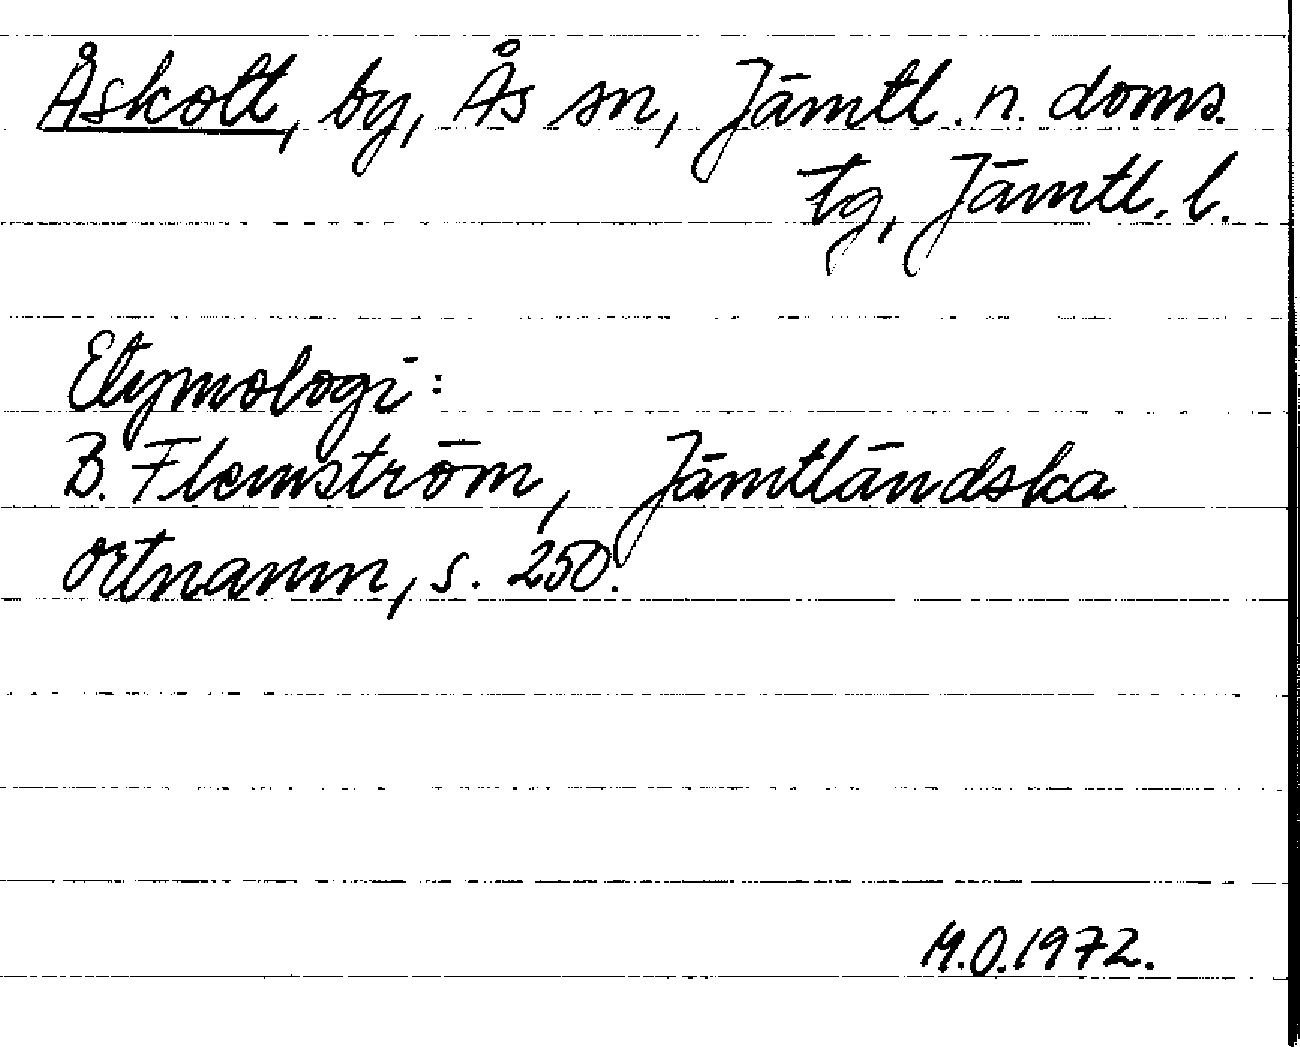 Åskott, by, Ås sn, Jämtl. n. doms.
tg, Jämtl. l.
Etymologi:
B. Flemström, Jämtländska
ortnamn, s. 250.
M.O.1972.